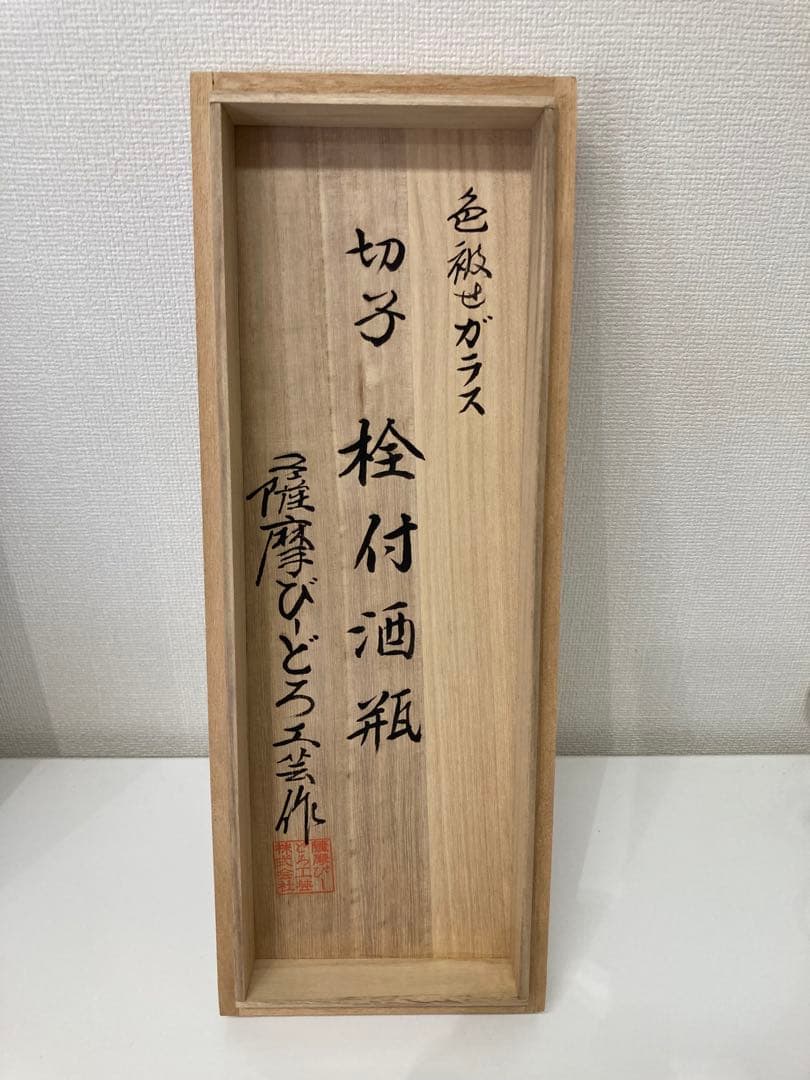 色被せガラス
切子 栓付酒瓶
薩摩びーどろ工芸作
薩摩びー
どろ工芸
株式会社